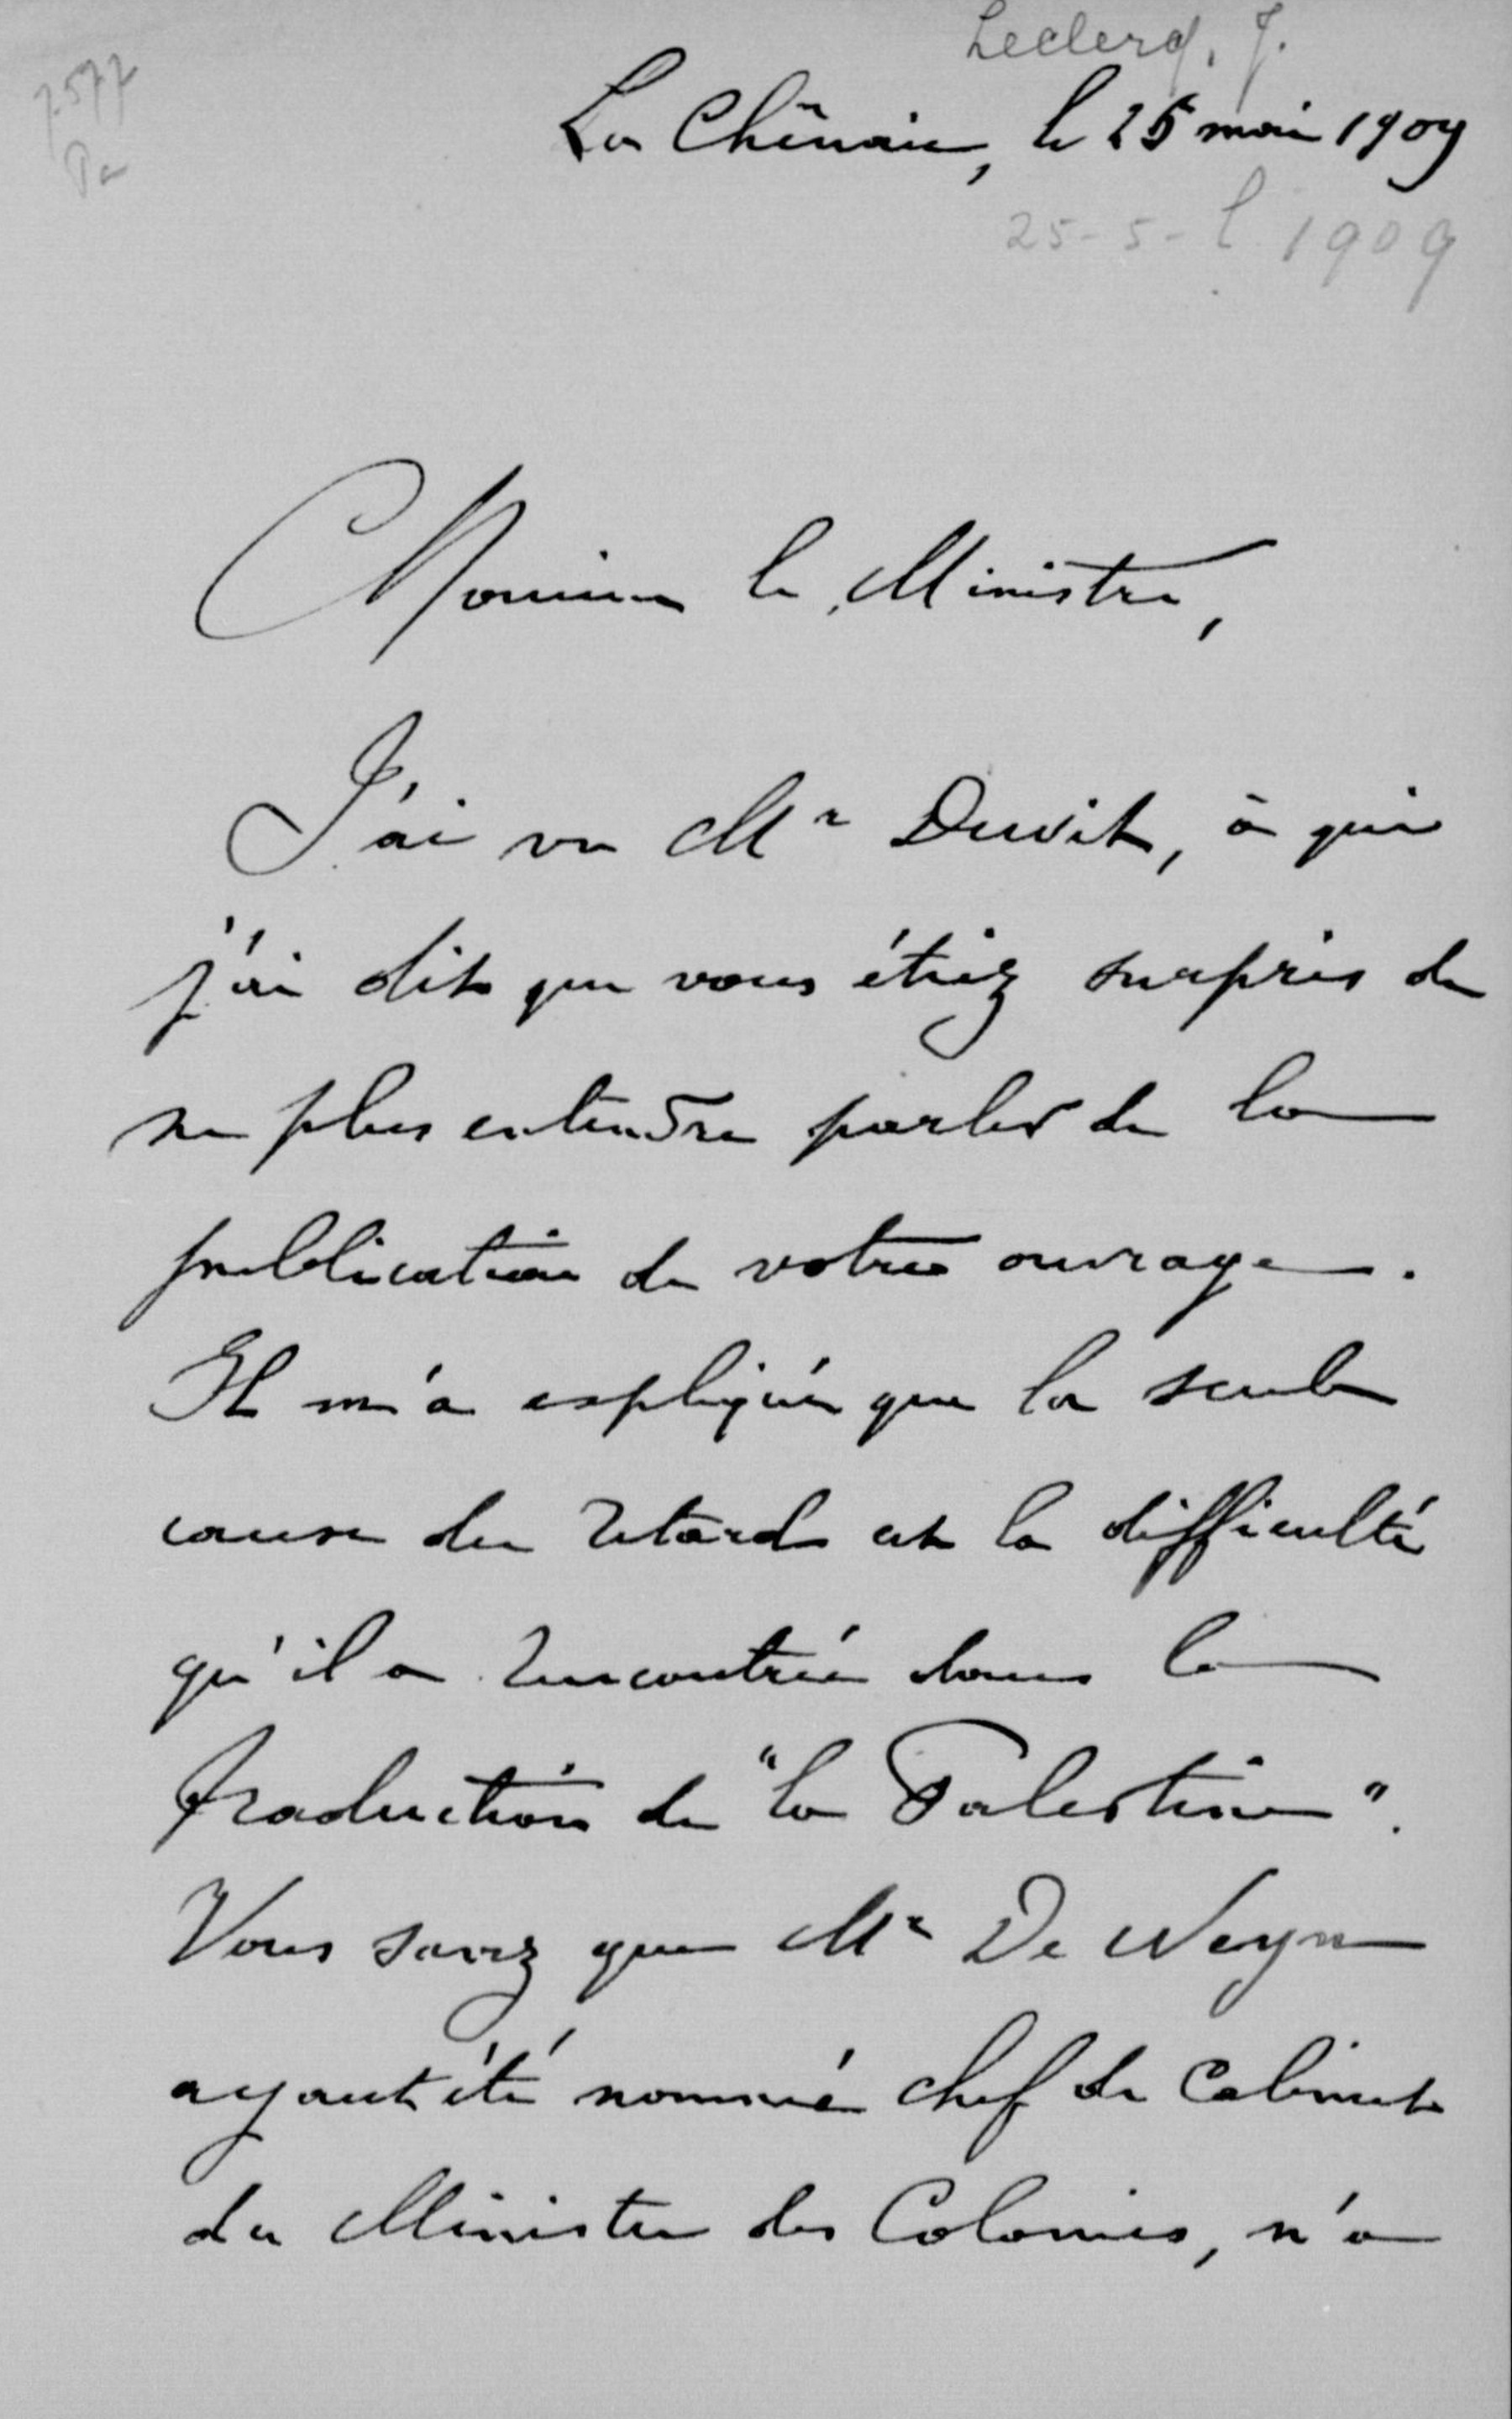 Leclercq, J.
La Chênaie, le 25 mai 1909
25-5-1909
Monsieur le Ministre,
J'ai vu Mr Dewit, à qui
j'ai dit que vous étiez surpris de
ne plus entendre parler de la
publication de votre ouvrage.
Il m'a expliqué que la seule
cause du retard est la difficulté
qu'il a rencontrée dans la
traduction de "la Palestine".
Vous savez que Mr De Weyn
ayant été nommé chef de Cabinet
du Ministre des Colonies, n'a